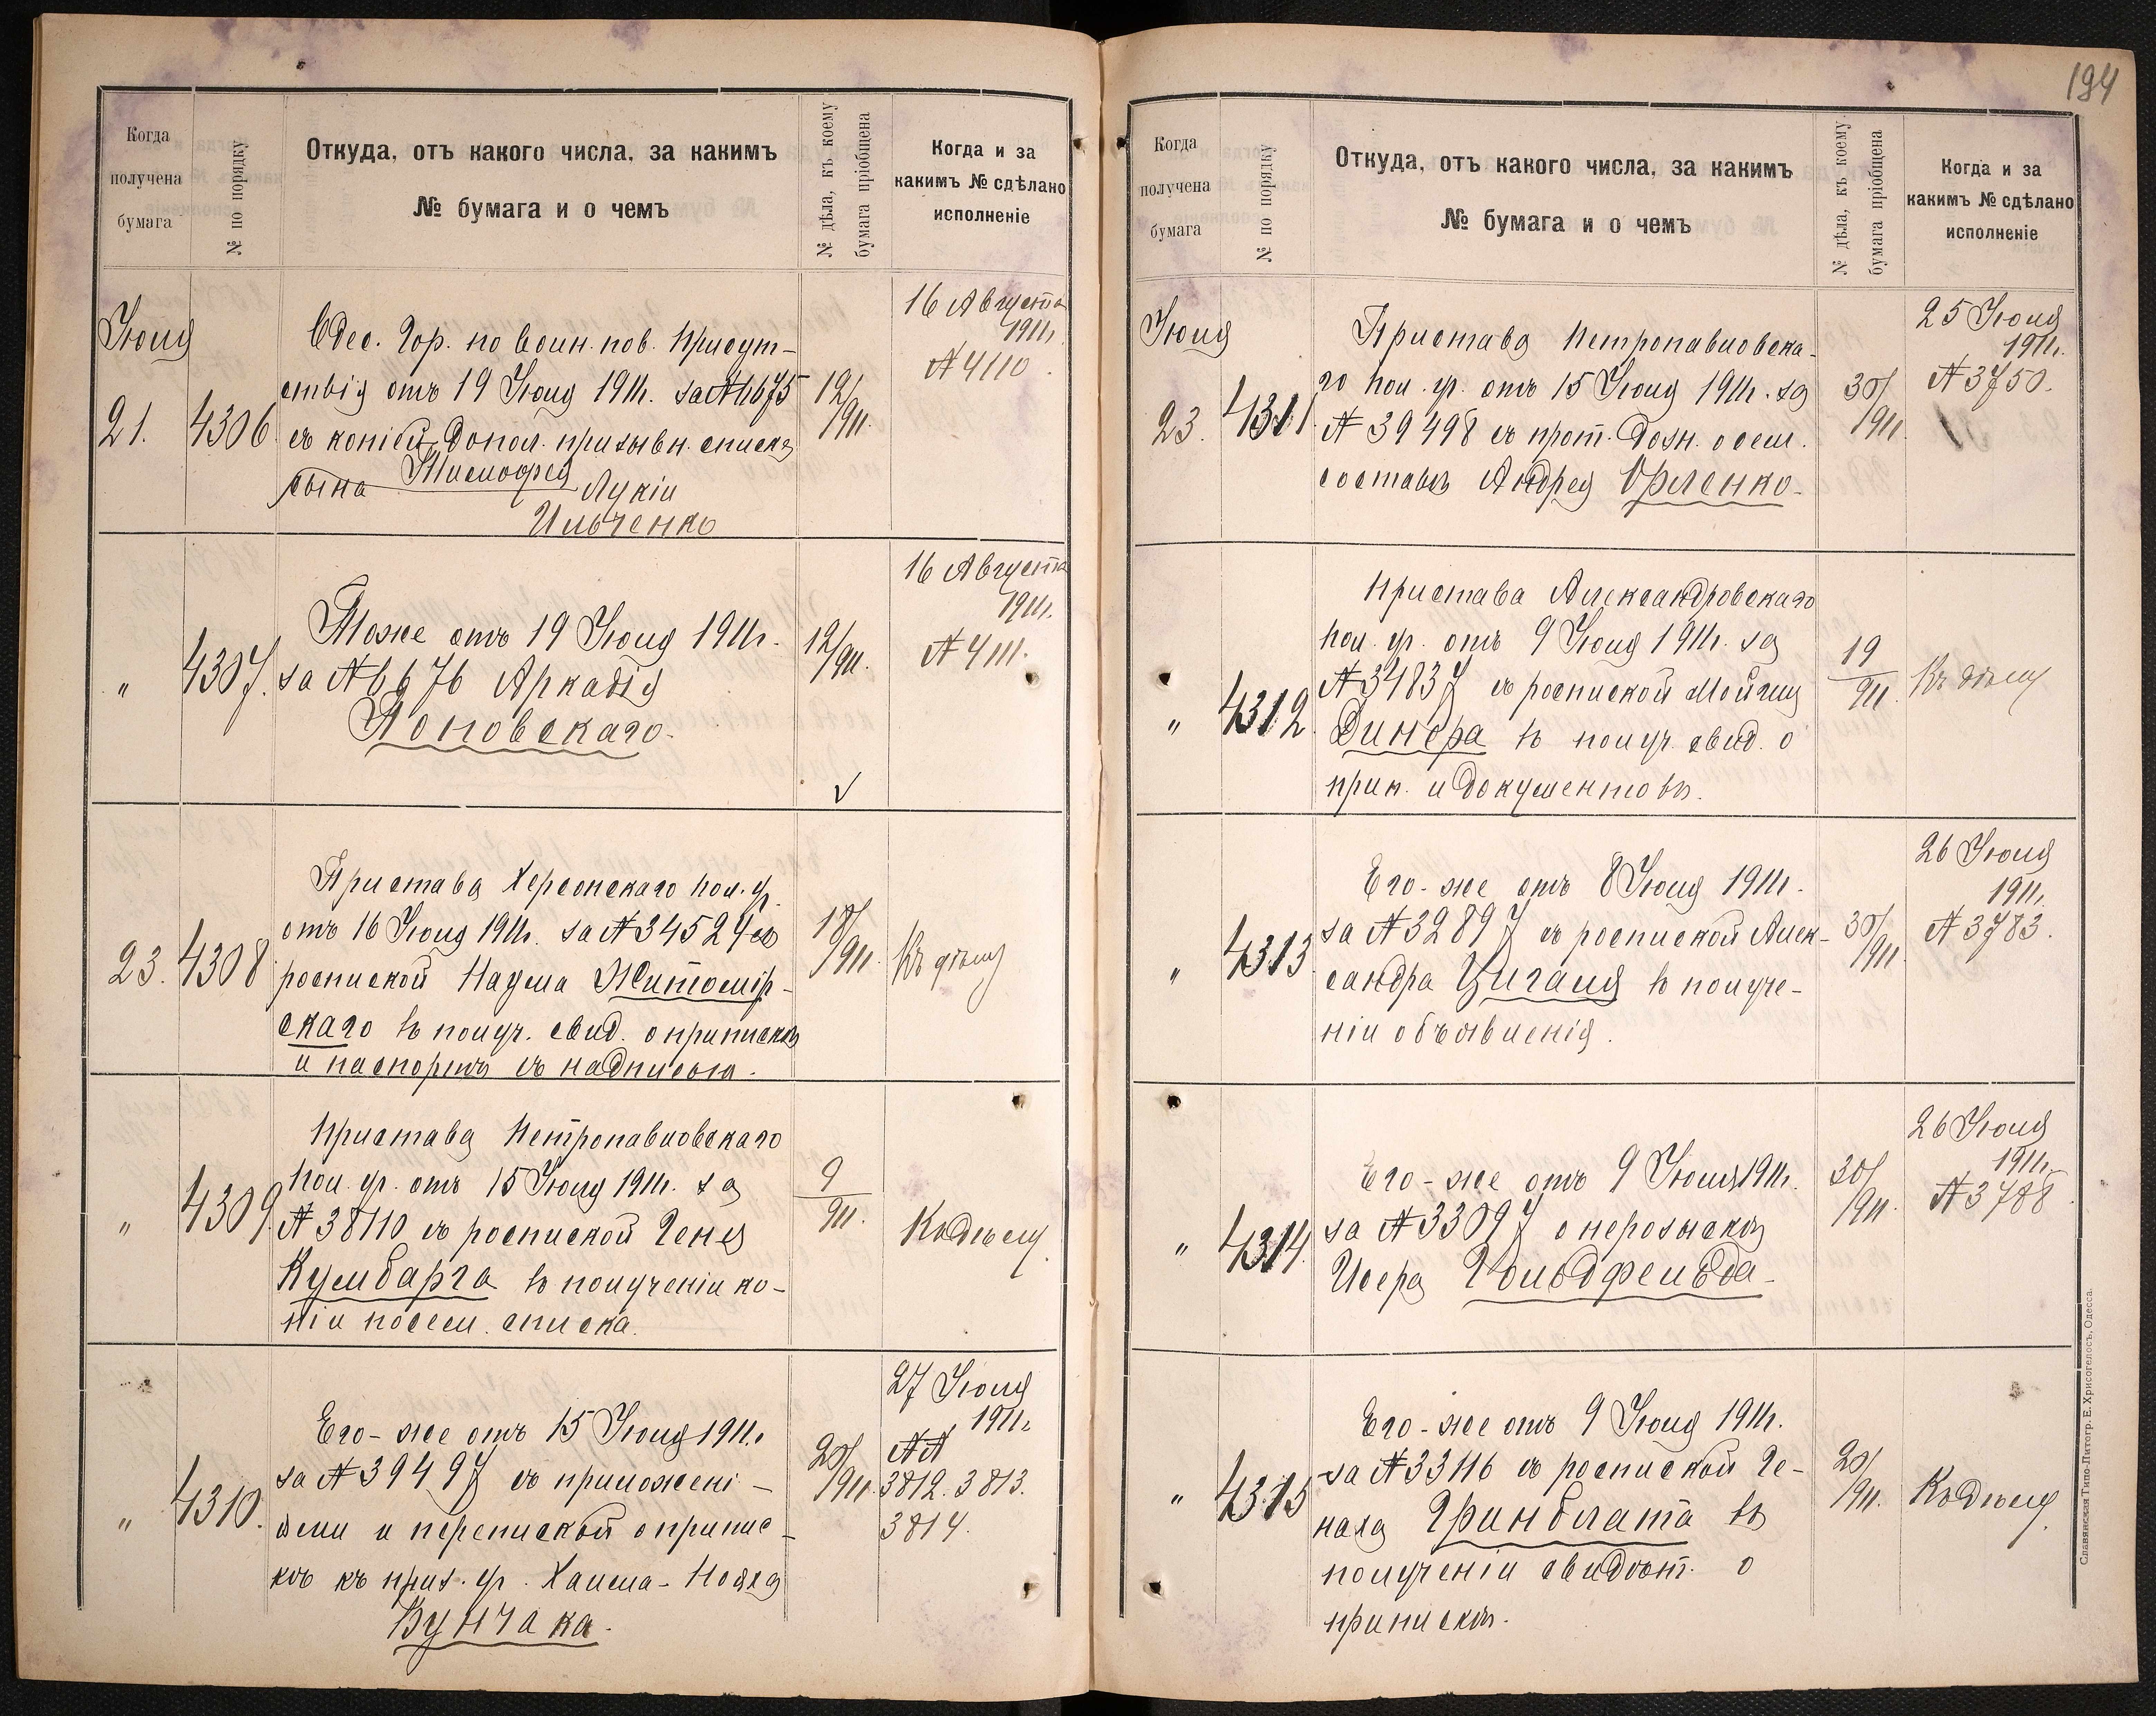 194
Когда
получена
бумага
№ по порядку
Откуда, отъ какого числа, за какимъ
№ бумага и о чемъ
№ дѣла, къ коему
бумага пріобщена
Когда и за
какимъ № сдѣлано
исполненіе
Іюля
21.
4306.
Одес. Гор. по воин. пов. Присут-
ствія отъ 19 Іюля 1911г. за №
съ копіей допол. призывн. списка
сына Тимофея Лукіи
Ильченко
12/911.
16 Августа
1911г.
№ 4110.
"
4307.
Тоже отъ 19 Іюля 1911г.
за № Аркадія
Поповскаго.
12/911.
16 Августа
1911г.
№ 4111.
23.
4308
Пристава Херсонскаго пол. уч.
отъ 16 Іюля 1911г. за № 34524 со
роспиской Наума Житомір-
скаго въ получ. свид. о припискѣ
и паспортъ съ надписью.
18/911.
Къ дѣлу
"
4309.
Пристава Петропавловскаго
пол. уч. отъ 15 Іюля 1911г. за
№ 38110 съ роспиской Геня
Кумбарга въ полученіи ко-
піи посем. списка.
9/911.
Къ дѣлу.
"
4310.
Его-же отъ 15 Іюля 1911г.
за № 39497 съ приложені-
ями и перепиской о припис-
кѣ къ приз. уч. Хаима-Нояха
Бунчака.
20/911.
27 Іюля
1911г.
№№
3812. 3813.
3814.
Когда
получена
бумага
№ по порядку
Откуда, отъ какого числа, за какимъ
№ бумага и о чемъ
№ дѣла, къ коему
бумага пріобщена
Когда и за
какимъ № сдѣлано
исполненіе
Іюля
23.
4311.
Пристава Петропавловска-
го пол. уч. отъ 15 Іюля 1911г. за
№ 39498 съ прот. дозн. о сем.
составѣ Андрея Орленко.
30/911.
25 Іюля
1911г.
№ 3750.
"
4312.
Пристава Александровскаго
пол. уч. отъ 9 Іюля 1911г. за
№ 34837 съ роспиской Мойши
Динера въ получ. свид. о
прип. и документовъ.
19/911.
Къ дѣлу
"
4313.
Его-же отъ 8 Іюля 1911г.
за № 32897 съ роспиской Алек-
сандра Цигаля въ получе-
ніи объявленія.
30/911
26 Іюля
1911г.
№ 3783.
"
4314.
Его-же отъ 9 Іюля 1911г.
за № 33097 о нерозыскѣ
Исера Гольдфельда.
30/911.
26 Іюля
1911г.
№ 3788.
"
4315
Его-же отъ 9 Іюля 1911г.
за № 33116 съ роспиской Ге-
наха Гринблата въ
полученіи свидѣт. о
припискѣ.
20/911.
Къ дѣлу.
Славянская Типо-Литогр. Е. Хрисогелосъ, Одесса.